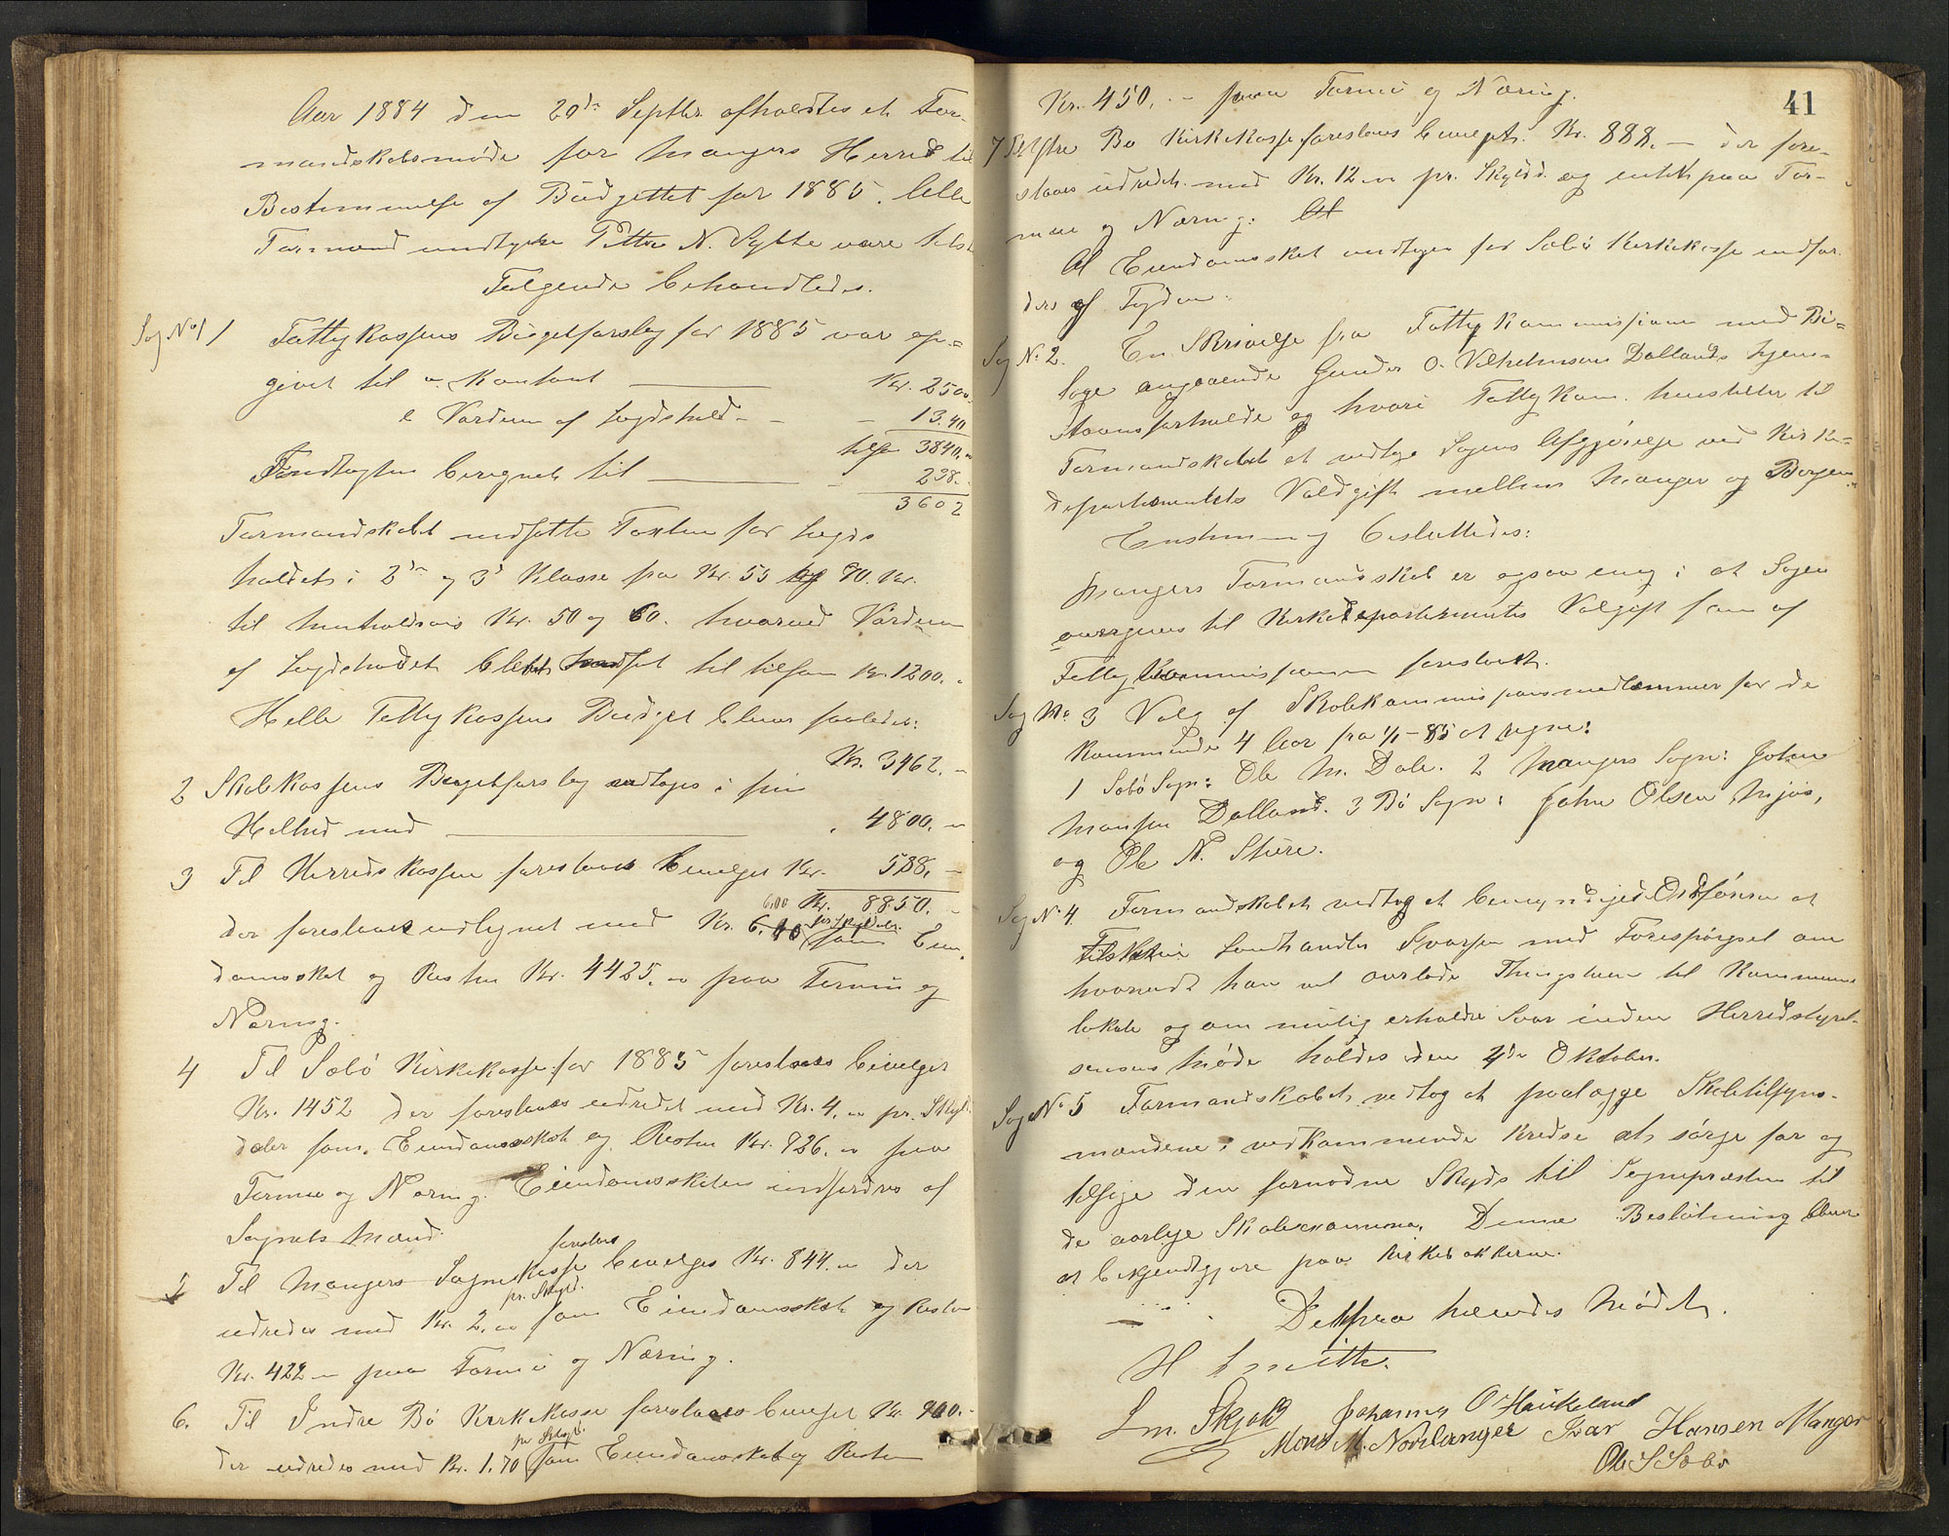 Aar 1884 den 20de Septbr. afholdtes et For-
mandskabsmøde for Mangers Herred til
Bestemmelse af Budgettet for 1885. Alle
Formænd undtagen Petter N. Sylte vare tilst
Følgende behandledes.
Sag No 1 1 Fattigkassens Budgetforslag for 1885 var op-
givet til a. Kontant Kr. 2500.
b Værdien af Lægdshold - 13.40
tilss 3840.
Indtægten beregnet til 238.
3602
Formandskabet nedsatte Taxten for Lægds
holdet i 2den og 3die Klasse fra Kr. 55 og 70. Kr.
til henholdsvis Kr. 50 og 60. hvorved Værdien
af Lægdsholdet blev nedsat til tilsam Kr. 1200.
Hele Fattigkassens Budget bliver saaledes:
Kr. 3462. -
2 Skolekassens Budgetforslag vedtoges i sin
Helhed med 4800. -
3 Til Herredskassen foreslaaes bevilget Kr. 588. -
Kr. 8850. -
6,00 pr. Skylddlr.
der foreslaaes udlignet med Kr. 6.00 som Eien-
domsskat og Resten Kr. 4425. - paa Formue og
Næring.
4 Til Sæbø Kirkekasse for 1885 foreslaaes bevilget
Kr. 1452 der foreslaaes udredet med Kr. 4. - pr. Skyld-
daler som Eiendomsskat og Resten Kr. 926. - paa
Formue og Næring. Eiendomsskatten indfordres af
Sognets Mænd.
foreslaaes
5 Til Mangers Sognekasse bevilges Kr. 844. - der
pr. Skyld.
udredes med Kr. 2. - som Eiendomsskat og Resten
Kr. 422 - paa Formue og Næring.
6. Til Indre Bø Kirkekasse foreslaaes bevilget Kr. 900. -
pr Skyld.
der udredes med Kr. 1.70 som Eiendomsskat og Resten
41
Kr. 450. - paa Formue og Næring.
7 Østre Bø Kirkekasse foreslaaes bevilget Kr. 888. - der fore-
slaaes udredet med Kr. 12 - pr. Skyldd. og intet paa For-
mue og Næring. Al
Al Eiendomsskat undtagen for Sæbø Kirkekasse indfor-
dres af Fogden.
Sag No 2. En Skrivelse fra Fattigkommissionen med Bi-
lage angaaende Gunder O. Vilhelmsen Dollands Hjem-
stavnsforholde og hvori Fattigkom. henstiller til
Formandskabet at vedtage Sagens Afgjørelse ved Kirke-
departementets Voldgift mellem Manger og Bergen
Enstemmig besluttedes:
Mangers Formandskab er ogsaa enig i at Sagen
overgives til Kirkedepartementets Volgift som af
Fattigkommissionen foreslaaet.
Sag No 3 Valg af Skolekommissionsmedlemmer for de
kommende 4 Aar fra 1/1-85 at regne:
1 Sæbø Sogn: Ole M. Dale. 2 Mangers Sogn: Johan
Monsen Dolland. 3 Bø Sogn: John Olsen Mjøs,
og Ole N. Sture.
Sag No 4 Formandskabet vedtog at bemyndige Ordføreren at
tilskrive Landhandler Ivarsen med Forespørgsel om
hvorvidt han vil overlade Thingstuen til Kommune
lokale og om mulig erholde Svar inden Herredsstyrel-
sens Møde holdes den 4de Oktober.
Sag No 5 Formandskabet vedtog at paalægge Skoletilsyns-
mændene i vedkommende Kredse at sørge for og
tilsige den fornødne Skyds til Sognepræsten til
de aarlige Skolexamina. Denne Beslutning bliver
at bekjendtgjøre paa Kirkebakkerne.
Dermed hævedes Mødet.
H Smith.
Lm. Skjold Johannes O Haukeland
Mons M. Nordanger Ivar Hansen Manger
Ole S Sæbø